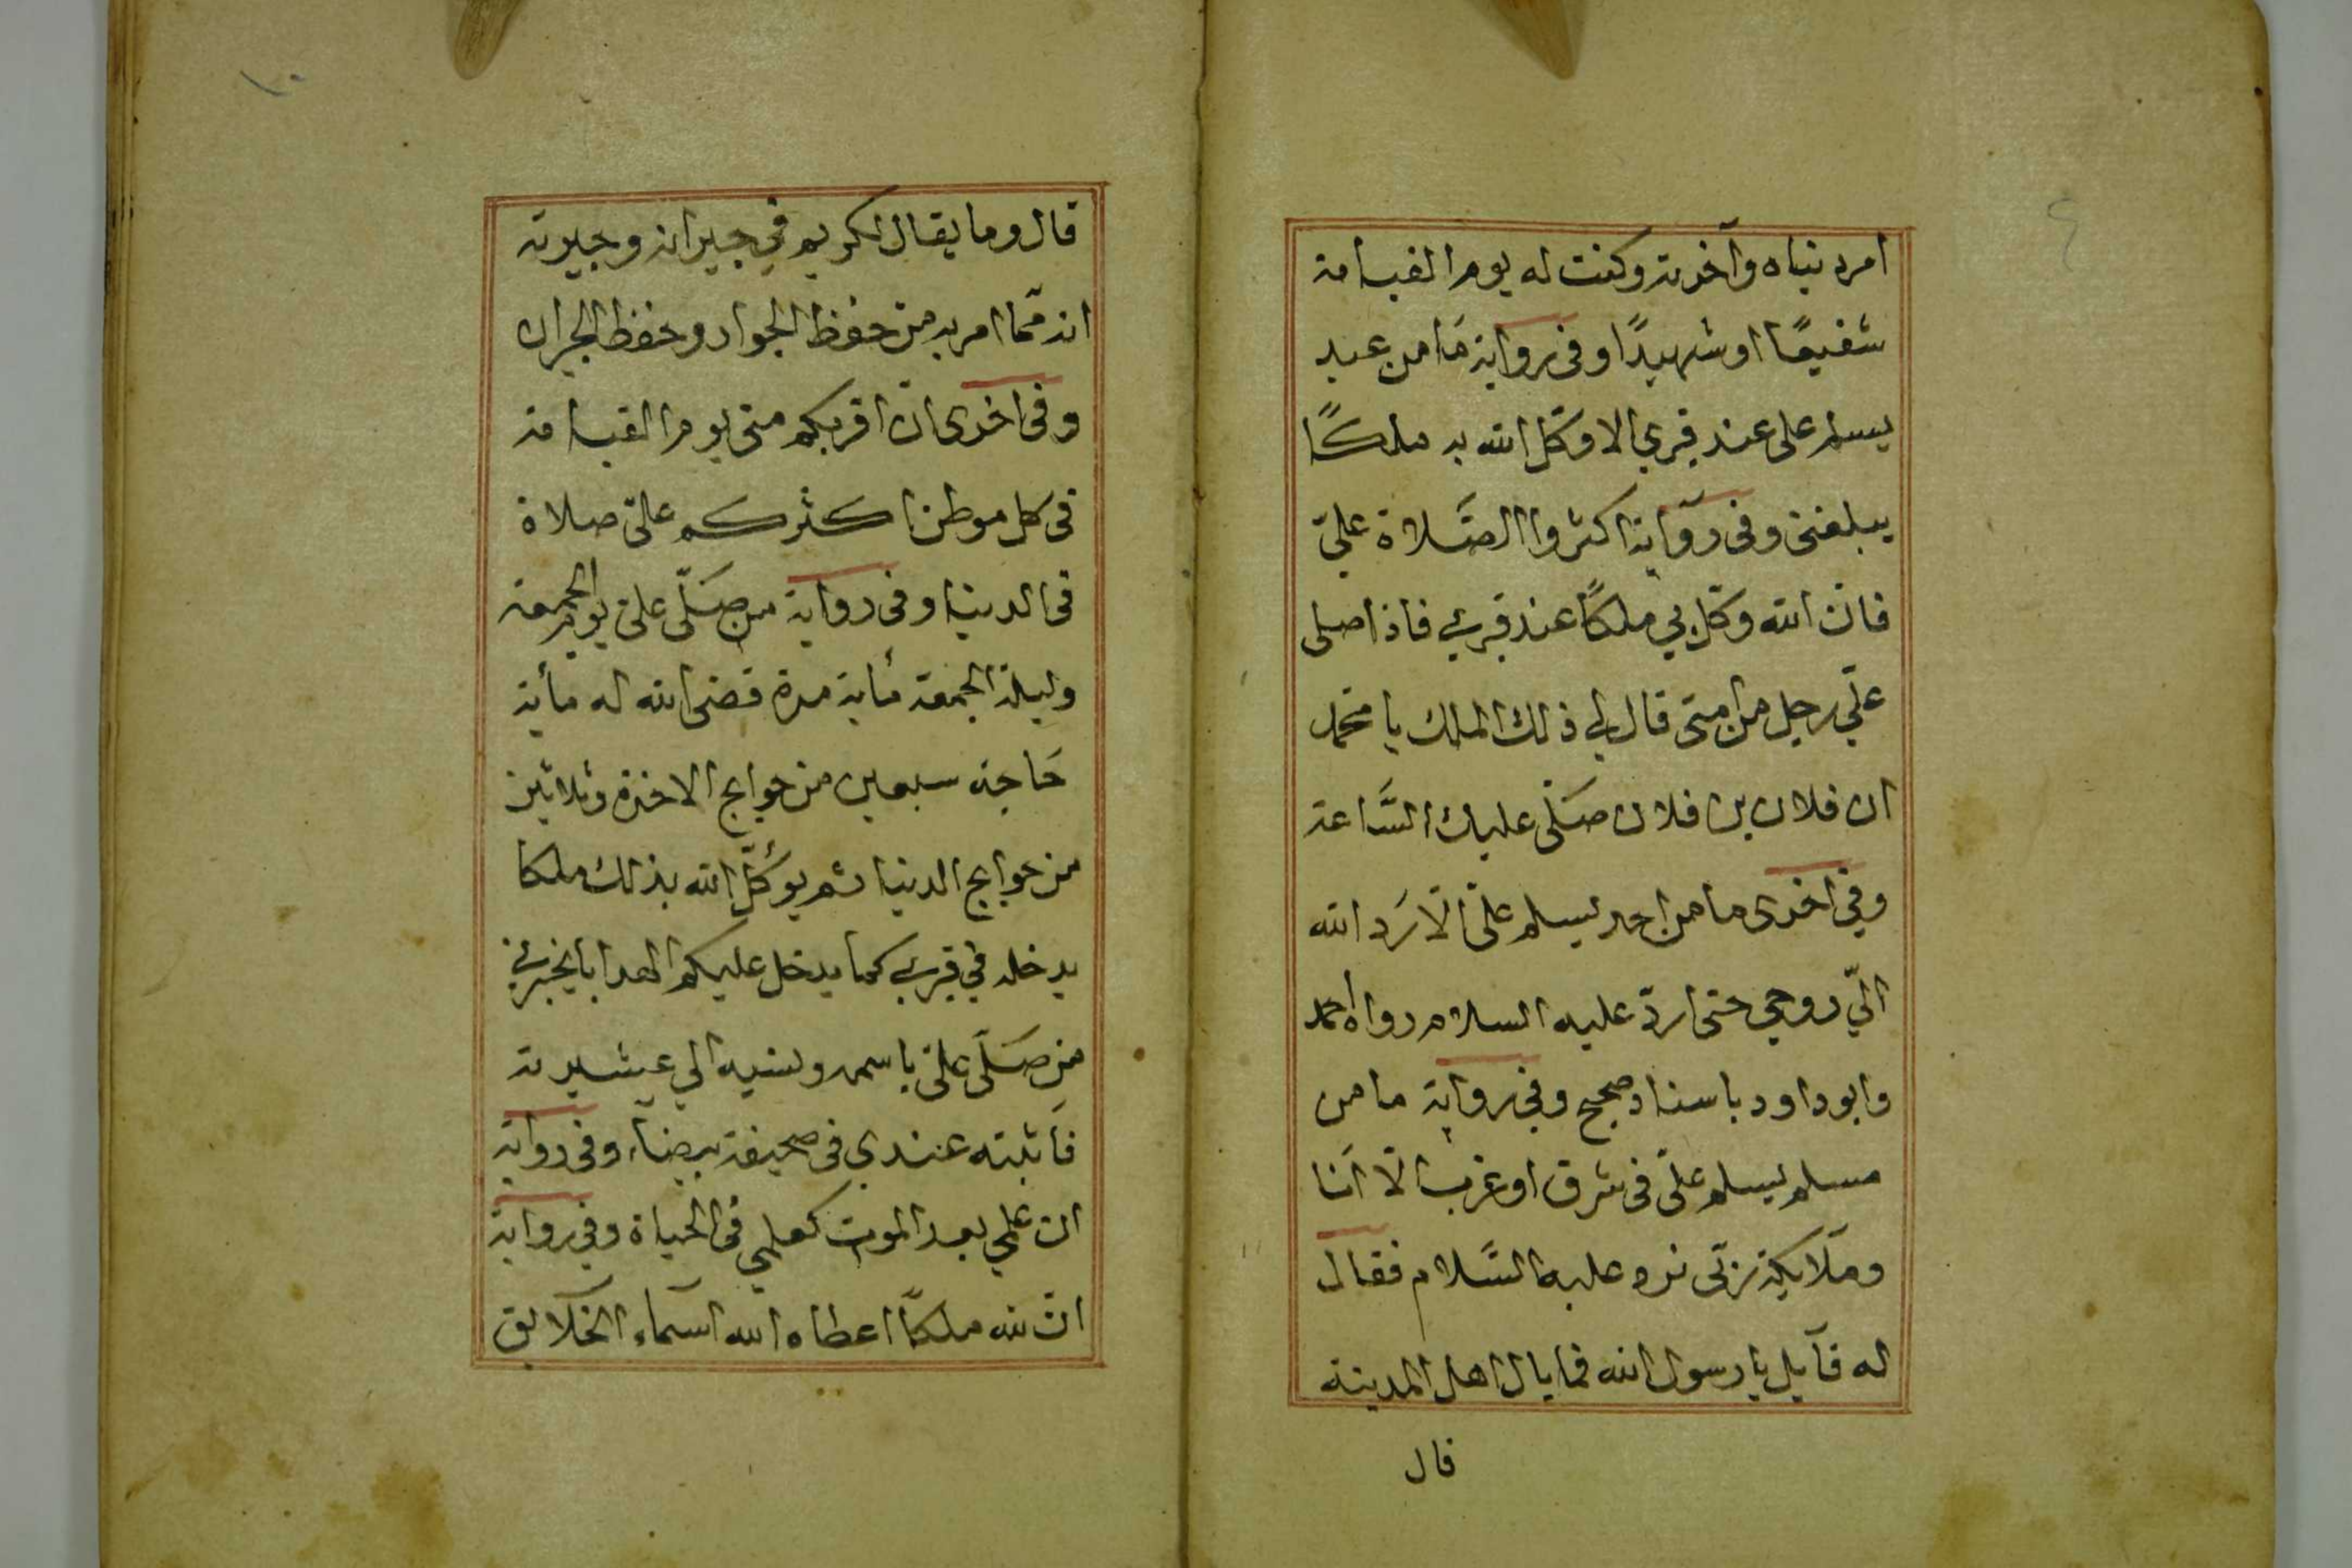 امر دنياه وآخرته وكنت له يوم القيامة
شفيعًا او شهيدًا وفى رواية مَا من عبد
يسلم على عند قبري الا وكّل الله به ملكًا
يبلغنى وفى روآية اكثروا الصَّلاة علىّ
فان الله وكّل بي ملكًا عند قبرى فاذا صلى
علّي رجل من امتى قال لي ذلك الملك يا محمّد
ان فلان بن فلان صَلّى عليك السَّاعة
وفي اخرى ما من احد يسلم علىّ الّا رَد الله
الىّ روحي حتى اردّ عليه السلام رواه احمد
وابو داود باسناد صحيح وفي رواية ما من
مسلم يسلم علىّ فى شرق او غرب الّا اَنا
ومَلايكة ربّى نرد عليه السَّلام فقال
له قآيل يا رسول الله فما بال اهل المدينة
قال
١٠
قال وما يقال لكريم في جيرانه وجيرته
انه ممّا امر به من حفظ الجوار وحفظ الجيران
وفى اخرى انّ اقربكم منى يوم القيامة
فى كل موطن اكثركم علىّ صلاة
فى الدنيا وفى رواية من صَلّى علىّ يوم الجمعة
وليلة الجمعة مُاية مرة قضى الله له مأية
حَاجة سبعين من حوايج الاخرة وثلاثين
من حوايج الدنيا ثم يوكّل الله بذلك ملكا
يدخله في قبرى كما يدخل عليكم الهدايا يخبرني
من صَلّى علىّ باسمه ونسبه الي عشيرته
فَاثبته عندي فى صحيفة بيضآء وفى رواية
ان علمي بعد الموت كعلمي فى الحياة وفي رواية
انّ لله ملكًا اعطاه الله اسمآء الخلآيق